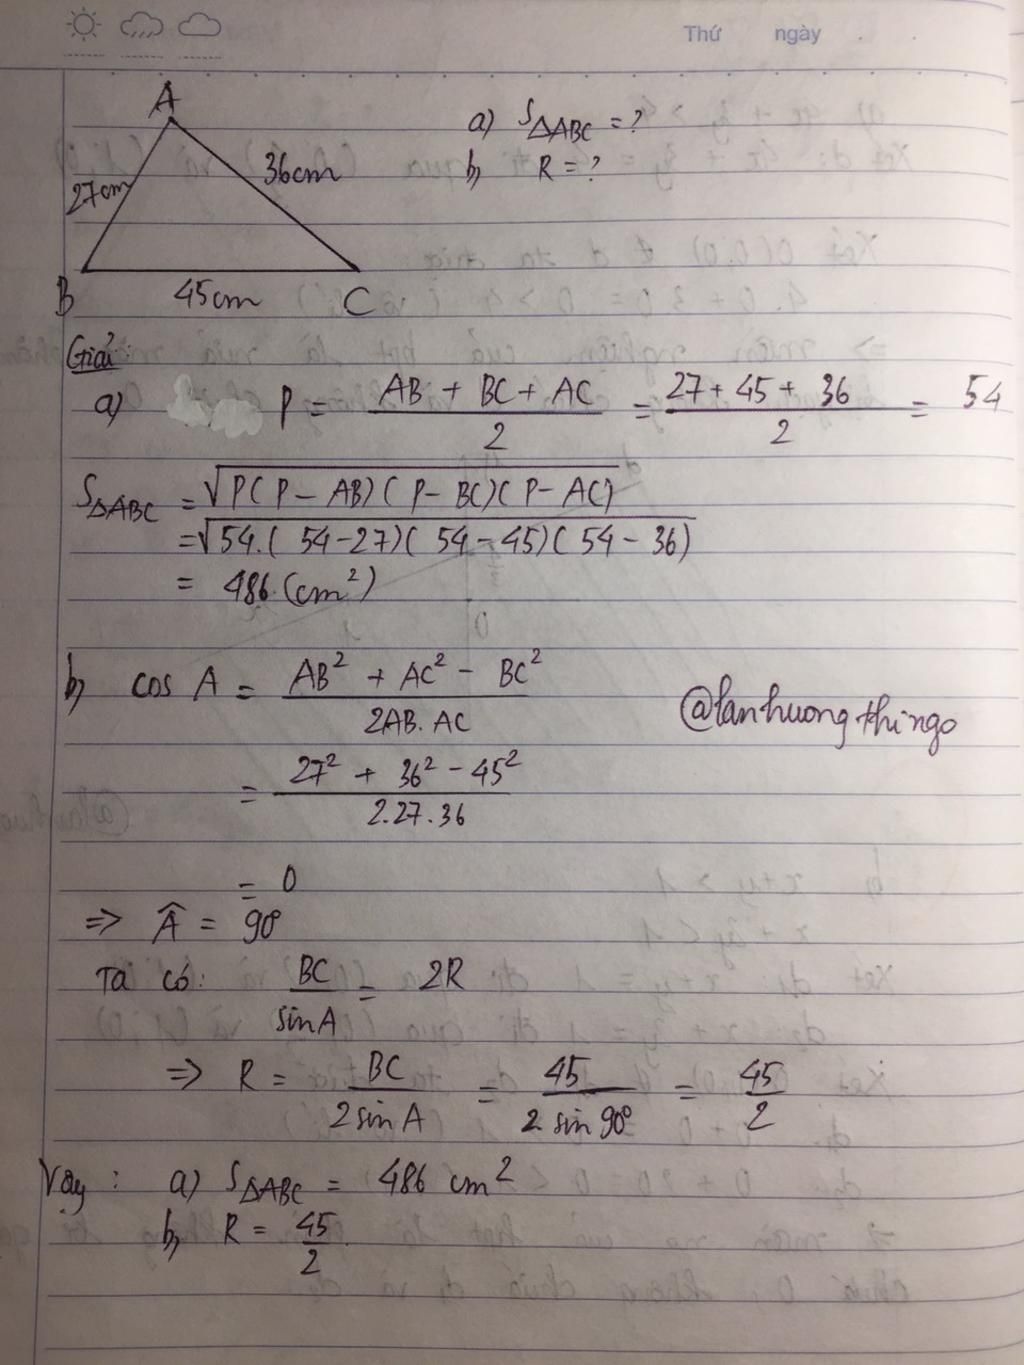 Thứ ngày
A
a) S△ABC = ?
b, R = ?
27cm
36cm
B
45cm
C
Giải:
a) P = (AB + BC + AC)/2 = (27 + 45 + 36)/2 = 54
S△ABC = √P(P - AB)(P - BC)(P - AC)
= √54.(54-27)(54-45)(54-36)
= 486 (cm²)
b, cos A = (AB² + AC² - BC²)/(2AB.AC)
@lanhuongthingo
= (27² + 36² - 45²)/(2.27.36)
= 0
=> Â = 90°
Ta có: BC/sinA = 2R
=> R = BC/(2sinA) = 45/(2.sin90°) = 45/2
Vậy: a) S△ABC = 486 cm²
b, R = 45/2.